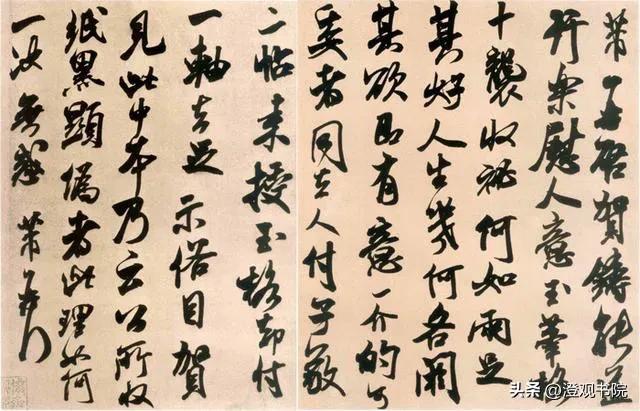 芾頓首啓賀鑄能道
行樂慰人意玉筆格
十襲收祕何如兩足
其好人生幾何各閼
其欲即有意一介的可
委者同去人付子敬
二帖來授玉格却付
一軸去足示俗目賀
見此中本乃云公所收
紙黑顯偽者此理如何
一決無惑芾頓首
头条 @澄观书院